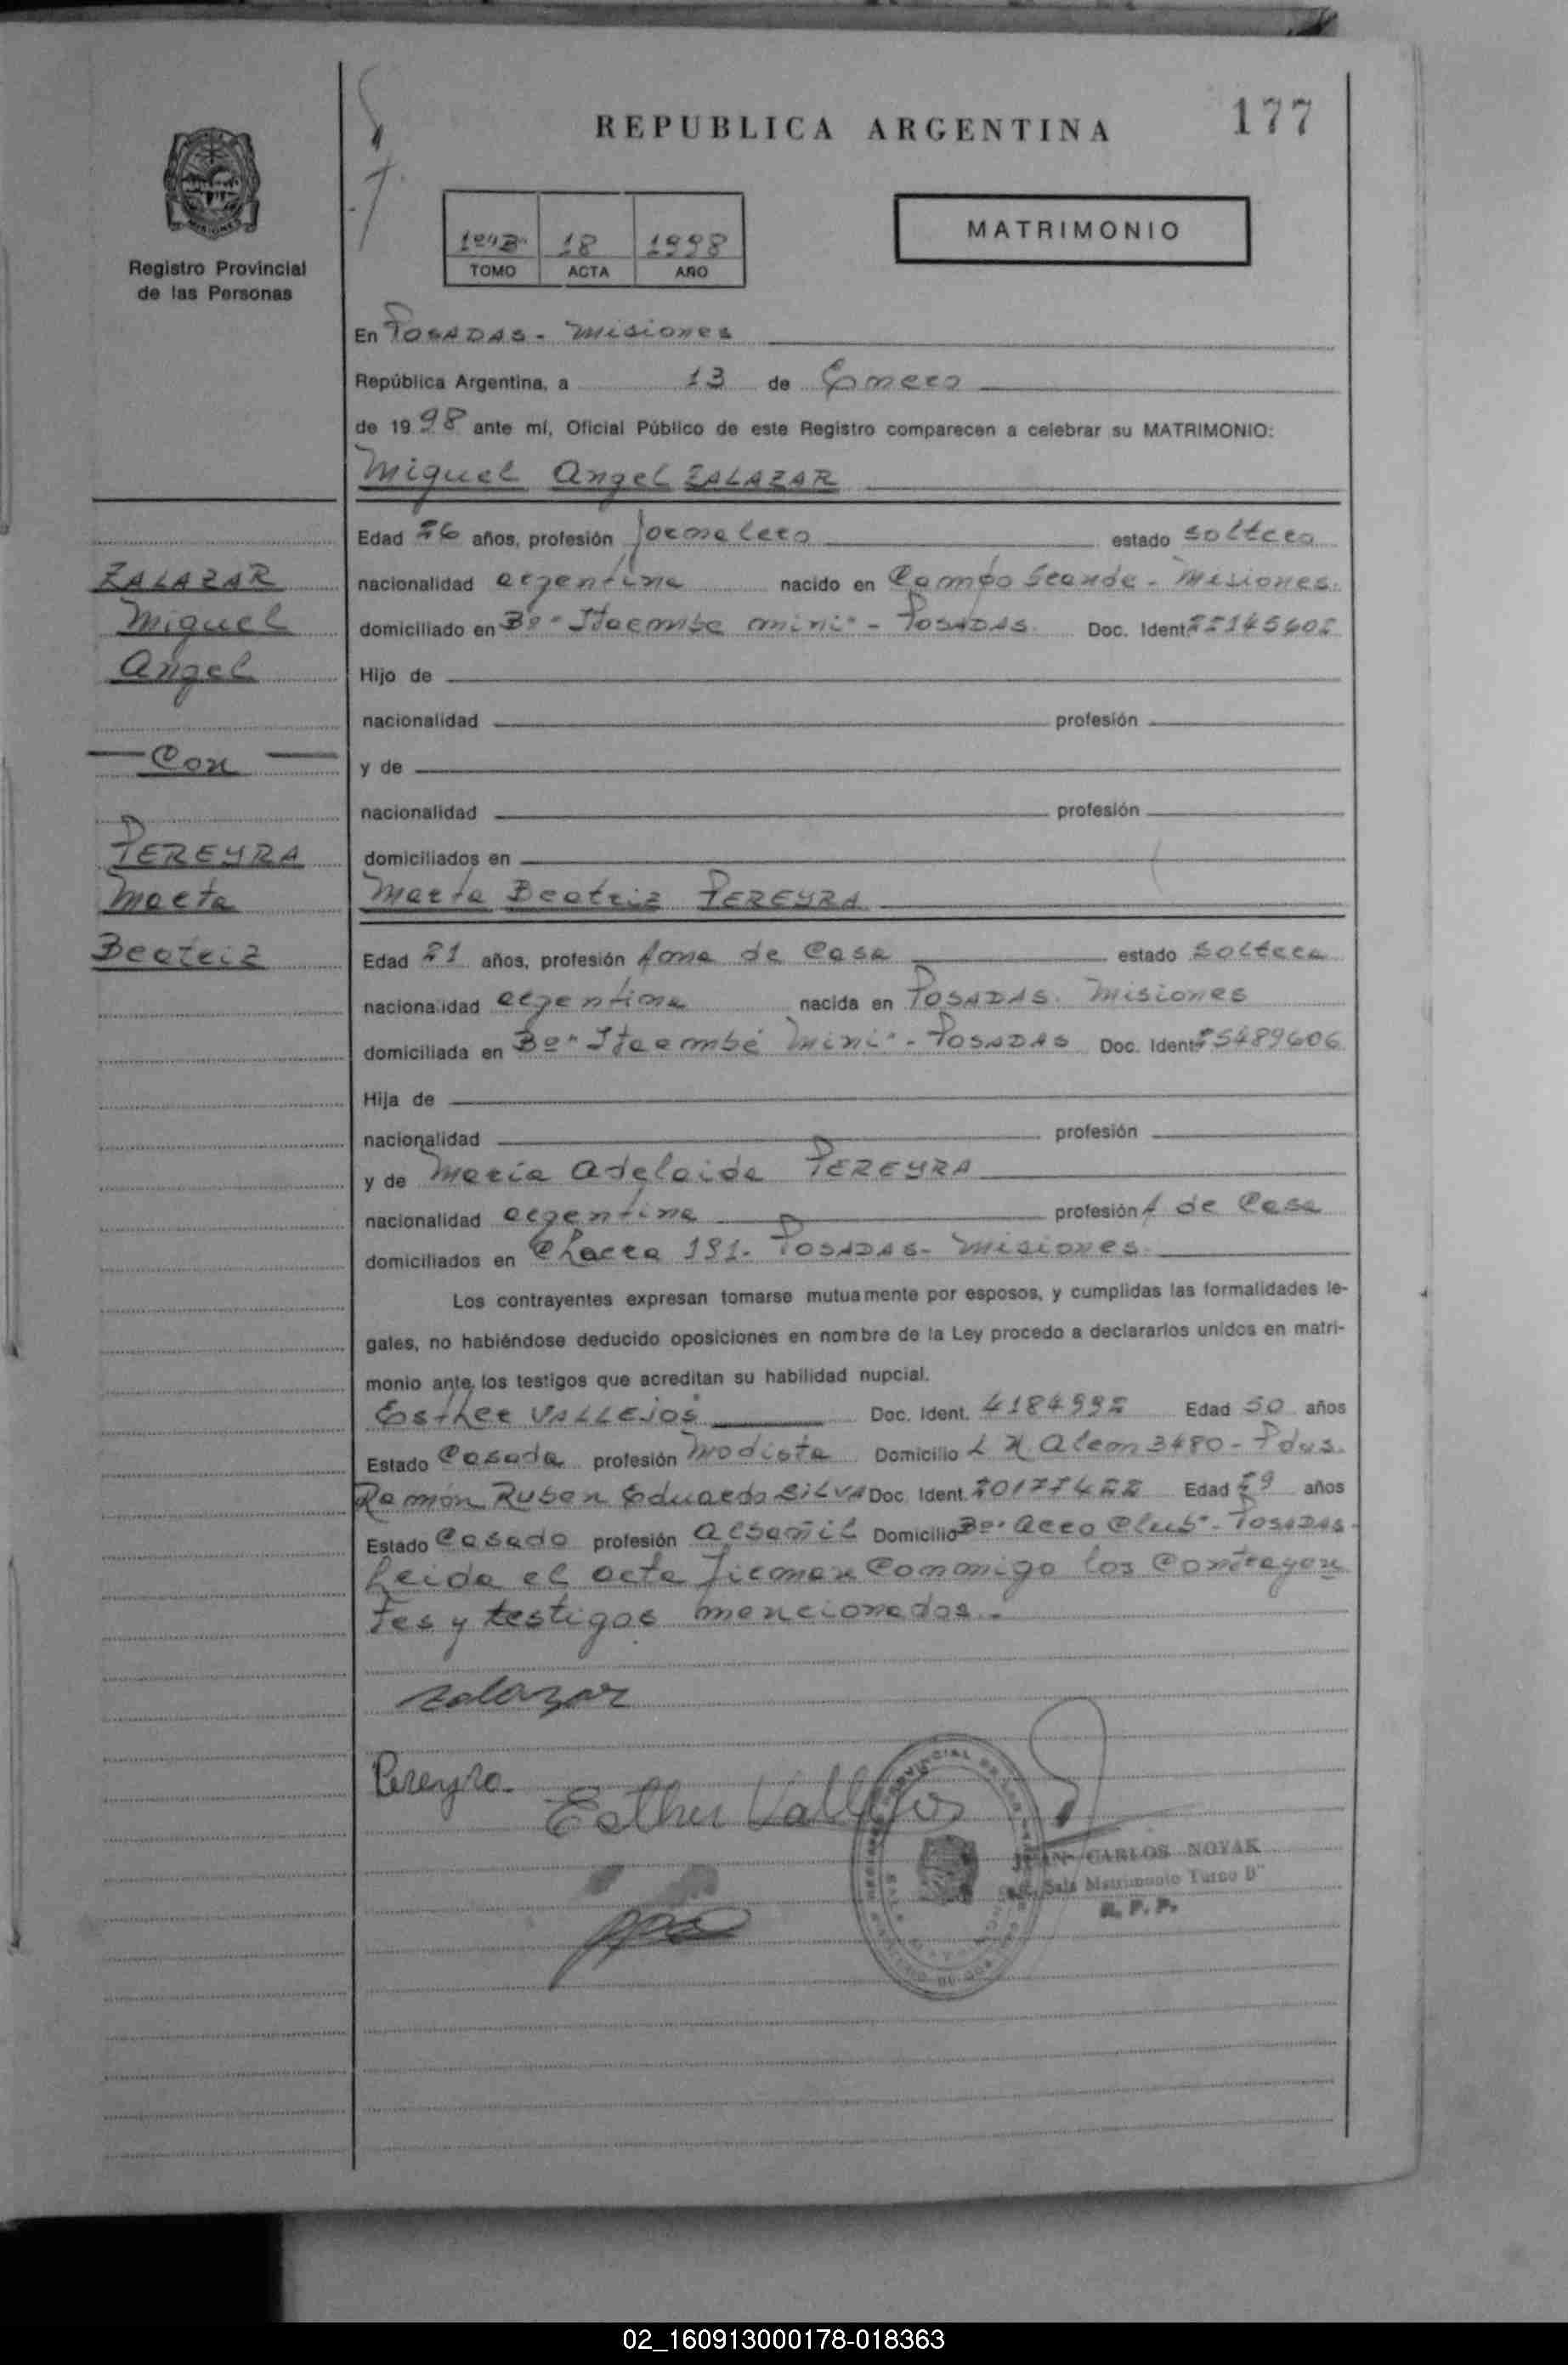 REPUBLICA ARGENTINA
177
Registro Provincial
de las Personas
18 1998
TOMO ACTA AÑO
MATRIMONIO
En POSADAS - Misiones
República Argentina, a 13 de Enero
de 1998 ante mí, Oficial Público de este Registro comparecen a celebrar su MATRIMONIO:
Miguel Angel ZALAZAR
Edad 26 años, profesión Jornalero estado soltero
nacionalidad argentina nacido en Campo Grande - Misiones.
domiciliado en Bº "Itaembe mini" - POSADAS. Doc. Ident 22145602
Hijo de
nacionalidad profesión
y de
nacionalidad profesión
domiciliados en
ZALAZAR
Miguel
Angel
Con
PEREYRA
Marta
Beatriz
Marta Beatriz PEREYRA
Edad 21 años, profesión Ama de Casa estado soltera
nacionalidad argentina nacida en POSADAS. Misiones
domiciliada en Bº "Itaembé Mini" - POSADAS Doc. Ident 25489606
Hija de
nacionalidad profesión
y de María Adelaida PEREYRA
nacionalidad argentina profesión A de Casa
domiciliados en Chacra 191 - POSADAS - Misiones.
Los contrayentes expresan tomarse mutuamente por esposos, y cumplidas las formalidades le-
gales, no habiéndose deducido oposiciones en nombre de la Ley procedo a declararlos unidos en matri-
monio ante los testigos que acreditan su habilidad nupcial.
Esther VALLEJOS Doc. Ident. 4184992 Edad 50 años
Estado Casada profesión Modista Domicilio L N Alem 3480 - Pdas.
Ramón Ruben Eduardo SILVA Doc. Ident. 20177422 Edad 29 años
Estado Casado profesión Albañil Domicilio Bº "Aero Club" - POSADAS
Leida el acta firman conmigo los Contrayen
tes y testigos mencionados.-
Zalazar
Pereyra
Esther Vallejos
JUAN CARLOS NOYAK
Sala Matrimonio Turno B"
R. P. P.
02_160913000178-018363